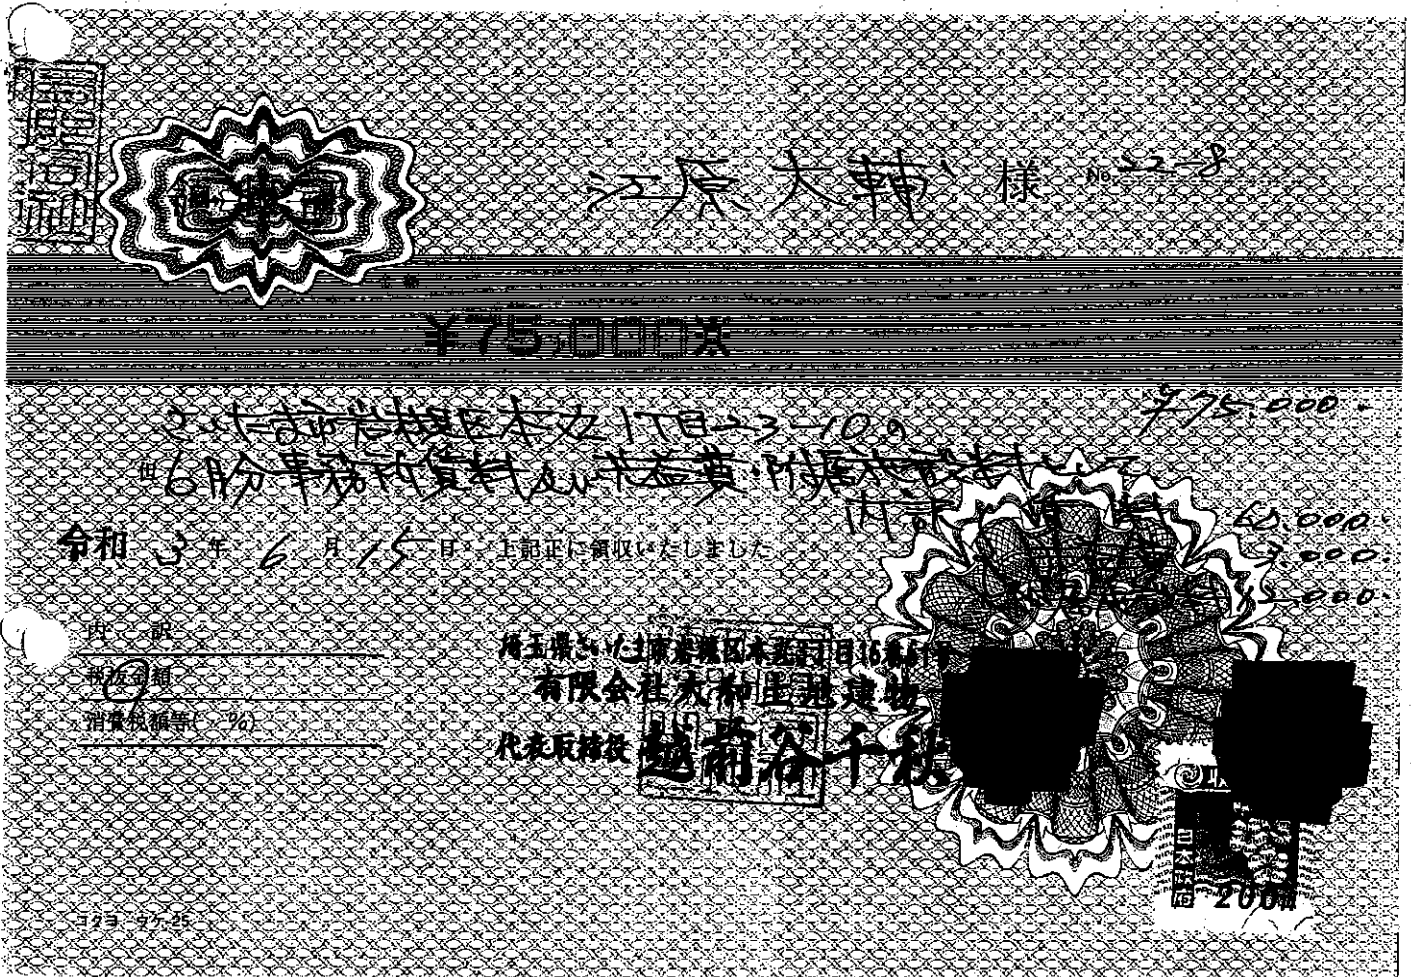 江原大輔 様 No. 22-8
¥75,000※
¥75.000.
さいたま市岩槻区本丸1丁目23-10の
但 6月分事務所賃料及び共益費・附属施設料として
内訳 賃料 60.000.
3.000.
12.000.
令和 3 年 6 月 15 日 上記正に領収いたしました
内 訳
税抜金額
消費税額等( %)
埼玉県さいたま市岩槻区本丸3丁目16番51号
有限会社大和土地建物
代表取締役 越前谷千秋
200円
コクヨ ウケ-25